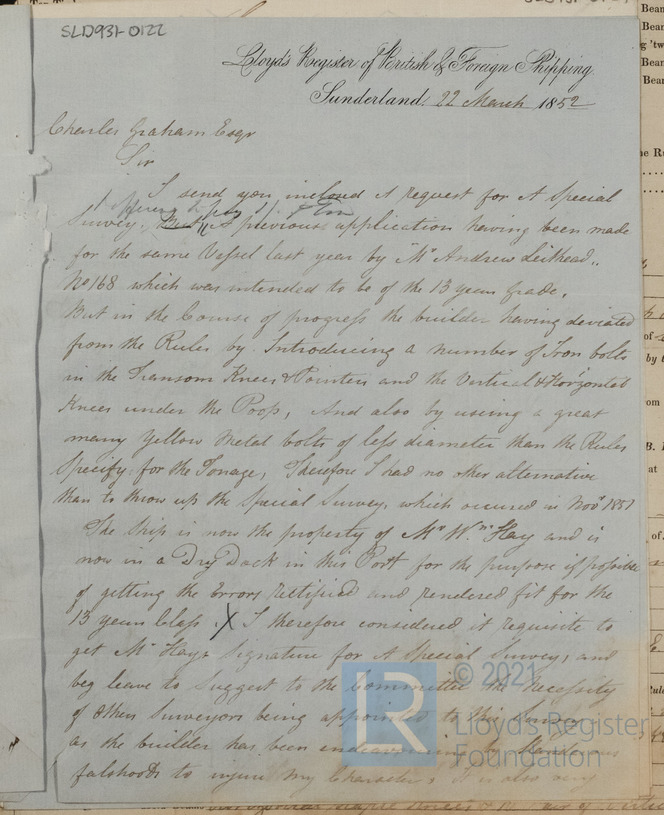 SLD931-0122
Lloyd's Register of British & Foreign Shipping.
Sunderland, 22 March 1852
Charles Graham Esqr
Sir
I send you inclosed A request for A Special
Survey, previous application having been made
for the same Vessel last year by Mr Andrew Leithead..
No 168 which was intended to be of the 13 years Grade.
But in the Course of progress the builder having deviated
from the Rules by Introducing a number of Iron bolts
in the Transom Knees & Pointers and the Vertical & Horizontal
Knees under the Poop, And also by using a great
many Yellow Metal bolts of less diameter than the Rules
Specify for the Tonage, Therefore I had no other alternative
than to throw up the Special Survey, which occured in Novr 1851
The Ship is now the property of Mr Wm Hay and is
now in a Dry Dock in this Port for the purpose if possible
of getting the Errors rectified and rendered fit for the
13 years Class. X I therefore considered it requisite to
get Mr Hays Signature for A Special Survey, and
beg leave to Suggest to the Committee the necessity
of others Surveyors being appointed to this
as the builder has been endeavouring by Slanderous
falshoods to injure my Character, It is also very
© 2021
LR
Lloyd's Register
Foundation